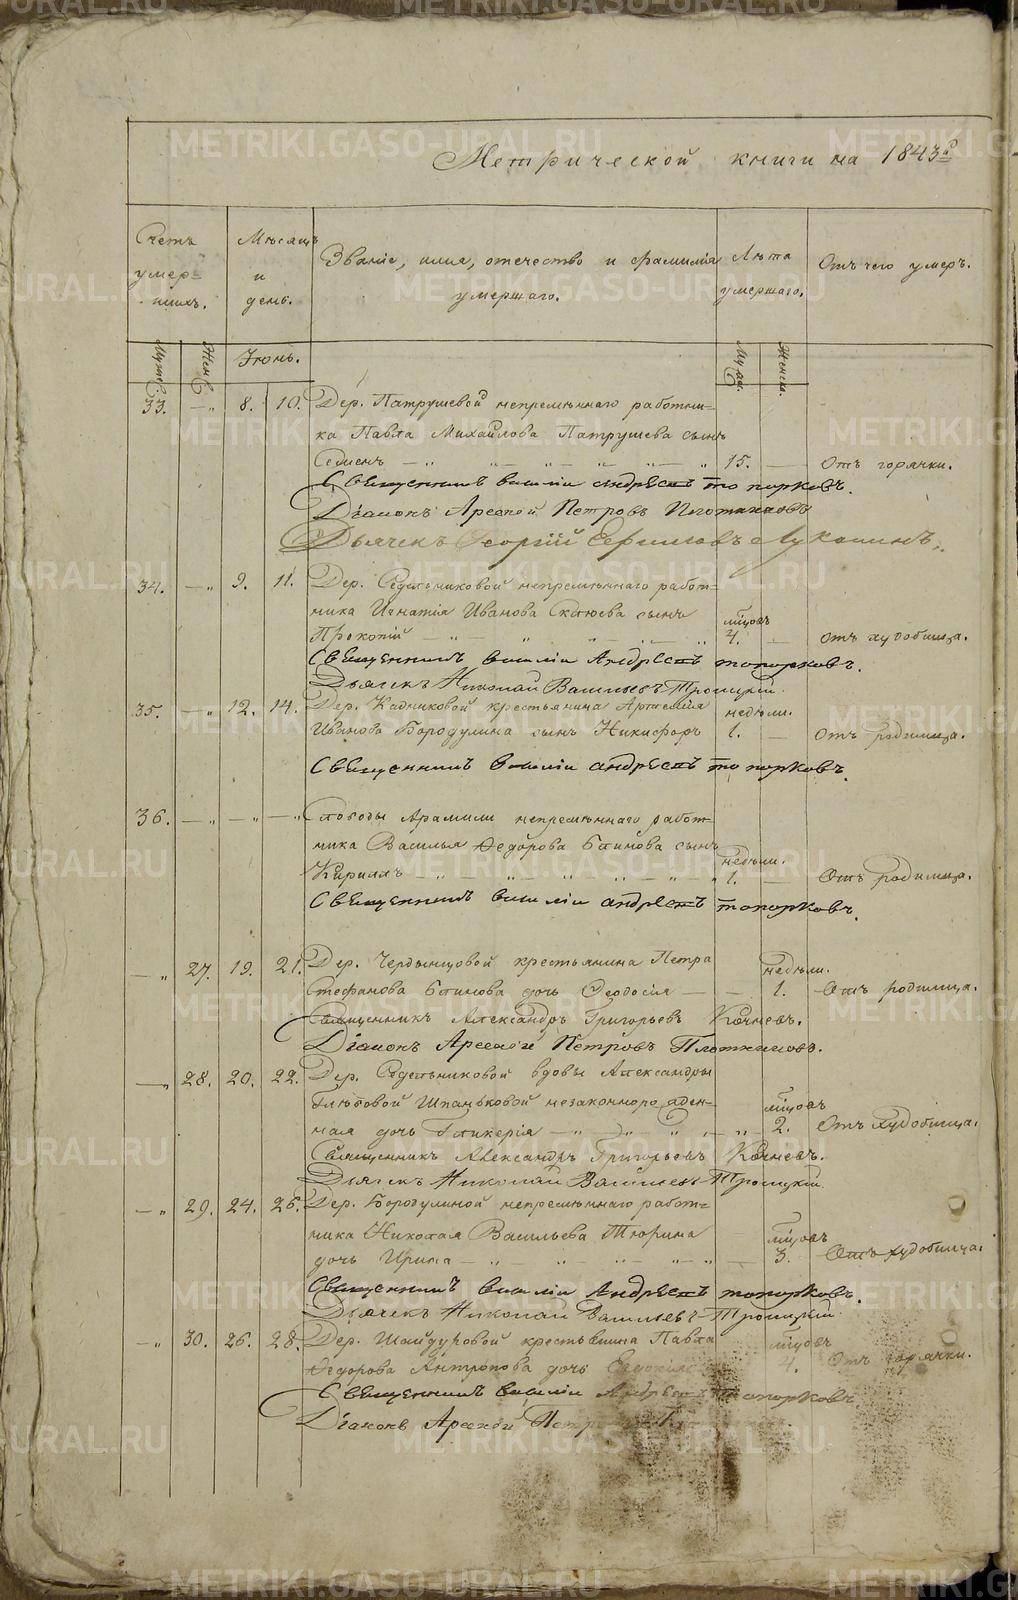 Метрической книги на 1843й
Счетъ умер- шихъ.
Мѣсяцъ и день.
Званіе, имя, отечество и фамилія умершаго.
Лѣта умершаго.
Отъ чего умеръ.
Муж. Жен. Іюнь. Муж. Женск.
33. — „ 8. 10. Дер. Патрушевой непремѣннаго работни-
ка Павла Михайлова Патрушева сынъ
Семенъ — „ 15. — Отъ горячки.
Священникъ Василій Андреевъ Топорковъ.
Діаконъ Арсеній Петровъ Плотниковъ
Дьячекъ Георгій Ефимовъ Луканинъ.
34. — „ 9. 11. Дер. Седельниковой непремѣннаго работ-
ника Игнатія Иванова сынъ мѣсцовъ
Прокопій — „ 4. — отъ худобища.
Священникъ Василій Андреевъ Топорковъ.
Дьячекъ Николай Васильевъ Троицкій.
35. — „ 12. 14. Дер. Кадниковой крестьянина Артемія недѣли.
Иванова Бородулина сынъ Никифоръ 1. — Отъ родимца.
Священникъ Василій Андреевъ Топорковъ.
36. — „ — „ — „ Слободы Арамили непремѣннаго работ-
ника Василья Ѳедорова Блинова сынъ недѣли.
Кириллъ — „ 1. — Отъ родимца.
Священникъ Василій Андреевъ Топорковъ.
— „ 27. 19. 21. Дер. Чердынцовой крестьянина Петра недѣли.
Стефанова Блинова дочь Ѳеодосія — — 1. Отъ родимца.
Священникъ Александръ Григорьевъ Кочневъ.
Діаконъ Арсеній Петровъ Плотниковъ.
— „ 28. 20. 22. Дер. Седельниковой вдовы Александры
Глѣбовой Шпаньковой незаконнорожден- мѣсцовъ
ная дочь Гликерія — „ 2. Отъ худобища.
Священникъ Александръ Григорьевъ Кочневъ.
Дьячекъ Николай Васильевъ Троицкій.
— „ 29. 24. 26. Дер. Бородулиной непремѣннаго работ-
ника Николая Васильева Тюрина мѣсцовъ
дочь Ирина — „ — 3. Отъ худобища.
Священникъ Василій Андреевъ Топорковъ.
Дьячекъ Николай Васильевъ Троицкій.
— „ 30. 26. 28. Дер. Шайдуровой крестьянина Павла мѣсцовъ
Ѳедорова Антропова дочь Евдокія 4. Отъ горячки.
Священникъ Василій Андреевъ Топорковъ.
Діаконъ Арсеній Петровъ
METRIKI.GASO-URAL.RU